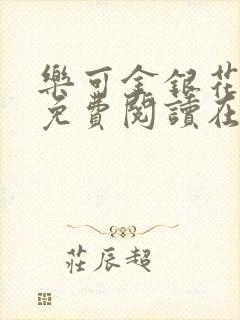 樂可金銀花
免費閱讀在
莊辰超